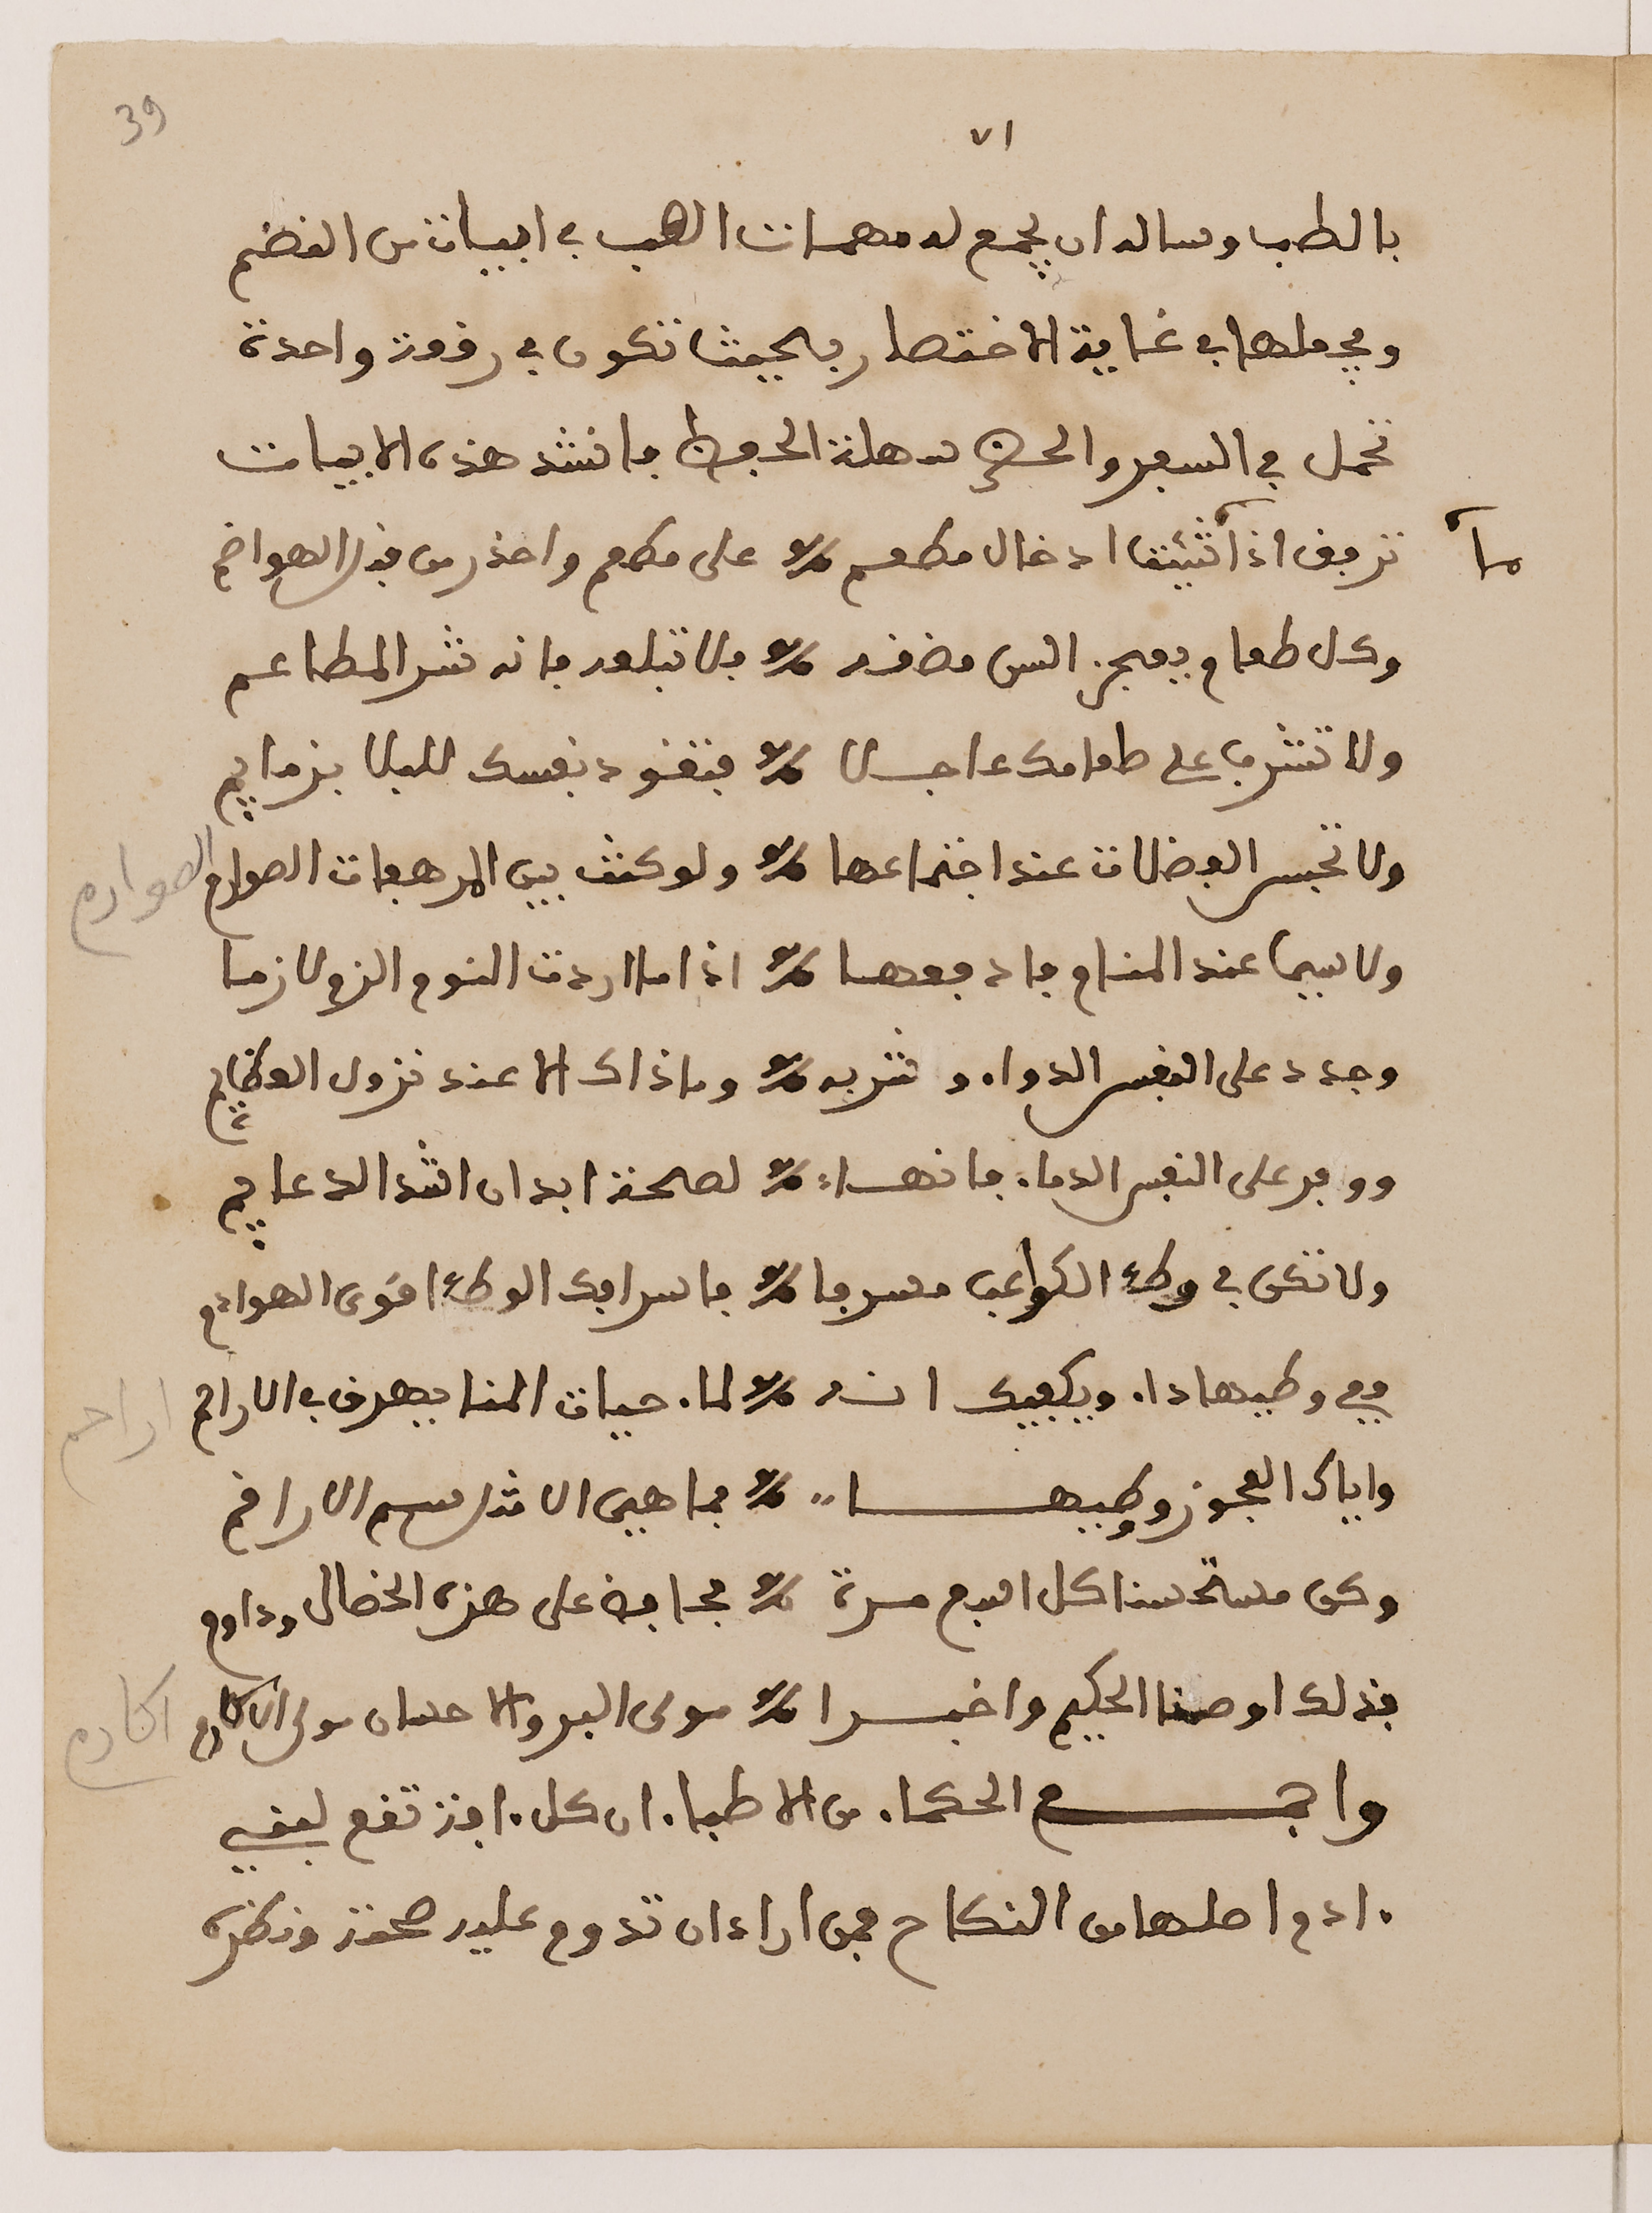 39
٧١
بالطب وساله ان يجمع له مهمات الطب في ابيات من النضم
ويجعلها في غاية الاختصار بحيث تكون في رقوة واحدة
تحمل في السفر والحضر سهلة الحفظ فانشد هذه الابيات
توقى اذا شئت ادخال مطعم ٪ على مطعم واحذر من قبل الهواضم
وكل طعام يعجز السن مضغه ٪ فلا تبلعه فانه شر المطاعم
ولا تشرب على طعامك عاجلا ٪ فتقود نفسك للبلا بزمايم
ولا تحبس الفضلات عند اجتماعها ٪ ولو كنت بين المرهفات الصوارم
الصوارم
ولا سيما عند المنام فادفعها ٪ اذا ما اردت النوم الزم لازما
وجدد على النفس الدواء وشربه ٪ وما ذاك الا عند نزول العظايم
ووفر على النفس الدماء فانها ٪ لصحة ابدان اشد الدعايم
ولا تكن في وطء الكواعب مسرفا ٪ فاسرافك الوطء اقوى الهوادم
ففي وطيها داء ويكفيك انه ٪ لماء حيات المنا يهرق في الاراحم
اراحم
واياك العجوز ووطيها ٪ فما هي الا مثل سم الاراقم
وكن مستحسنا كل اسبع مرة ٪ محافظ على هذه الخصال وداوم
بذلك اوصنا الحكيم واخبرا ٪ مولى البر والاحسان مولى الاكارم
اكارم
واجمع الحكماء من الاطباء ان كل افة تقع لبني
ادم اصلها من النكاح فمن اراد ان تدوم عليه صحته ونظره